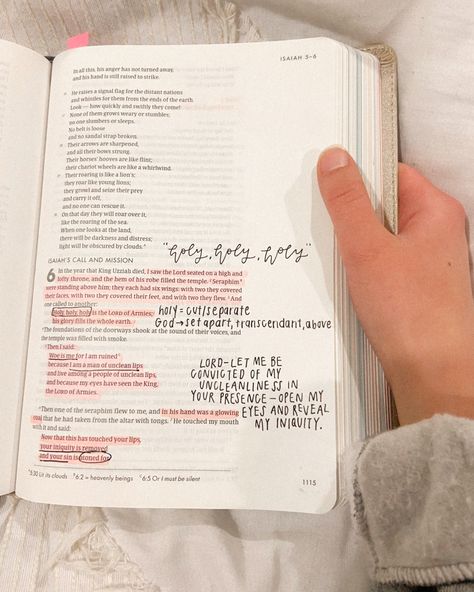 ISAIAH 5–6
In all this, his anger has not turned away,
and his hand is still raised to strike.
He raises a signal flag for the distant nations
and whistles for them from the ends of the earth.
Look — how quickly and swiftly they come!
None of them grows weary or stumbles;
no one slumbers or sleeps.
No belt is loose
and no sandal strap broken.
Their arrows are sharpened,
and all their bows strung.
Their horses' hooves are like flint;
their chariot wheels are like a whirlwind.
Their roaring is like a lion's;
they roar like young lions;
they growl and seize their prey
and carry it off,
and no one can rescue it.
On that day they will roar over it,
like the roaring of the sea.
When one looks at the land,
there will be darkness and distress;
light will be obscured by clouds.
"holy, holy, holy"
ISAIAH'S CALL AND MISSION
6 In the year that King Uzziah died, I saw the Lord seated on a high and
lofty throne, and the hem of his robe filled the temple. ² Seraphim
were standing above him; they each had six wings: with two they covered
their faces, with two they covered their feet, and with two they flew. ³ And
one called to another:
Holy, holy, holy is the LORD of Armies;
his glory fills the whole earth.
holy = cut/separate
God → set apart, transcendant, above
The foundations of the doorways shook at the sound of their voices, and
the temple was filled with smoke.
Then I said:
Woe is me for I am ruined
because I am a man of unclean lips
and live among a people of unclean lips,
and because my eyes have seen the King,
the LORD of Armies.
LORD – LET ME BE
CONVICTED OF MY
UNCLEANLINESS IN
YOUR PRESENCE – OPEN MY
EYES AND REVEAL
MY INIQUITY.
Then one of the seraphim flew to me, and in his hand was a glowing
coal that he had taken from the altar with tongs. ⁷ He touched my mouth
with it and said:
Now that this has touched your lips,
your iniquity is removed
and your sin is atoned for.
5:30 Lit its clouds 6:2 = heavenly beings 6:5 Or I must be silent
1115